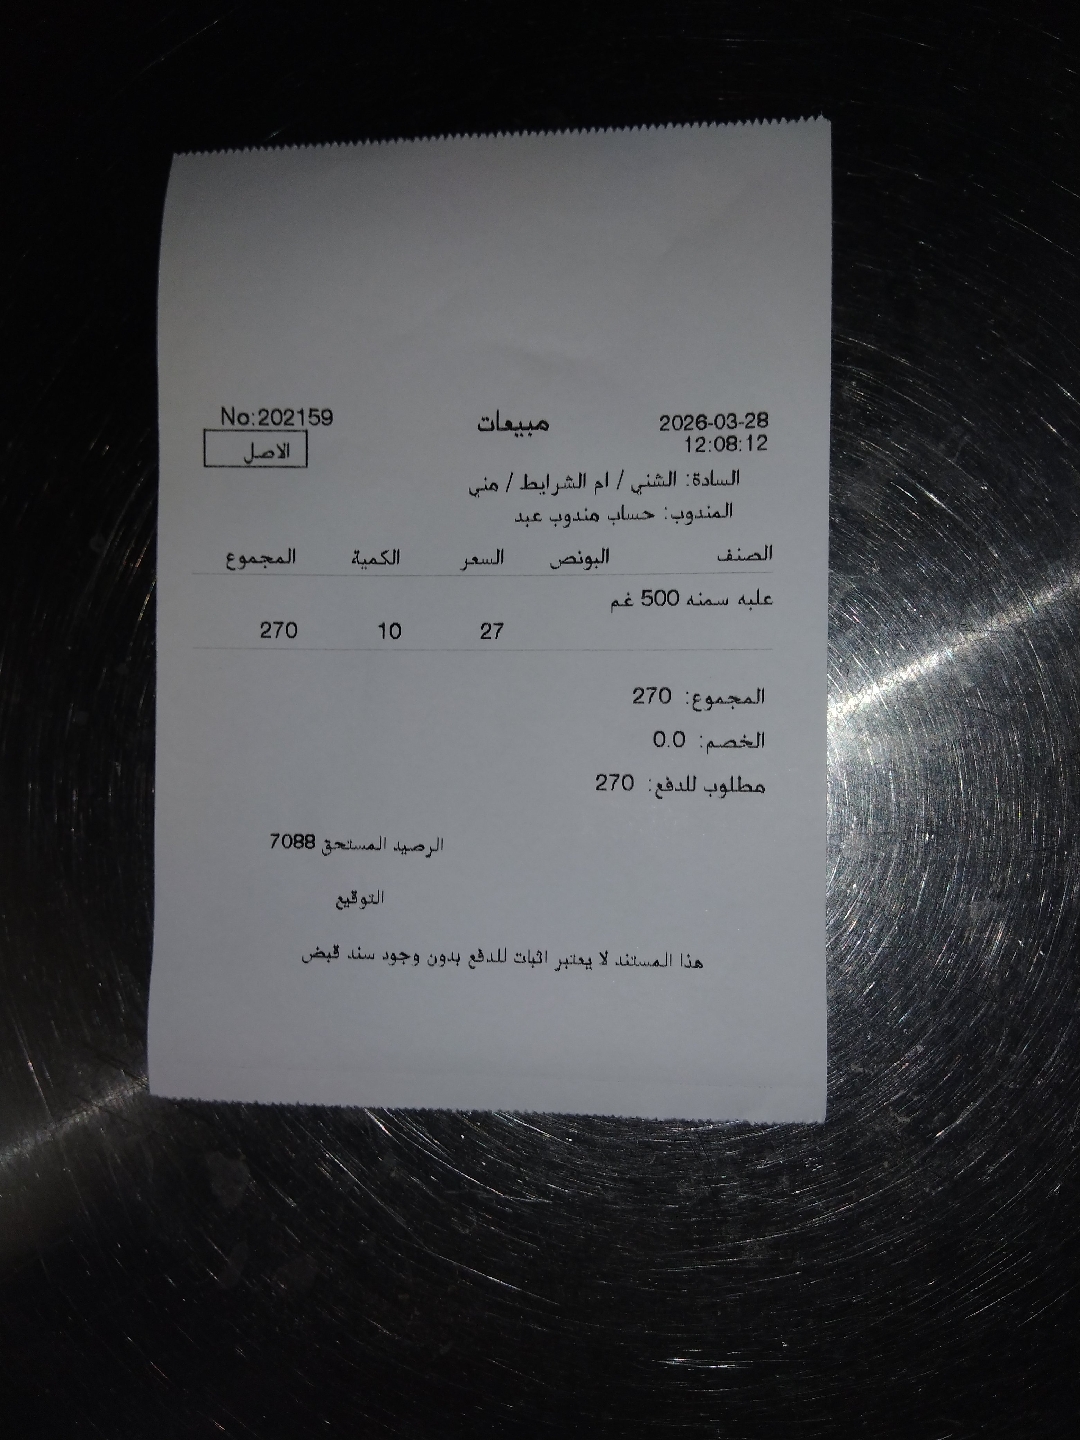 2026-03-28 مبيعات No:202159
12:08:12 الاصل
السادة: الشني / ام الشرايط / مني
المندوب: حساب مندوب عبد
الصنف البونص السعر الكمية المجموع
علبه سمنه 500 غم
27 10 270
المجموع: 270
الخصم: 0.0
مطلوب للدفع: 270
الرصيد المستحق 7088
التوقيع
هذا المستند لا يعتبر اثبات للدفع بدون وجود سند قبض